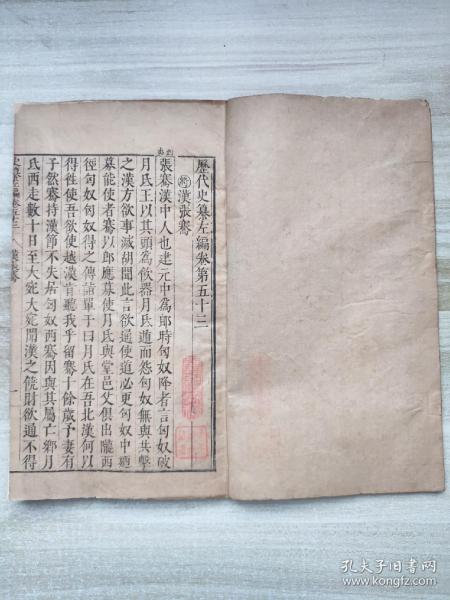 歷代史纂左編卷第五十三
將漢張騫
張騫漢中人也建元中為郎時匈奴降者言匈奴破
月氏王以其頭為飲器月氏遁而怨匈奴無與共擊
之漢方欲事滅胡聞此言欲通使道必更匈奴中廼
募能使者騫以郎應募使月氏與堂邑父俱出隴西
徑匈奴匈奴得之傳詣單于曰月氏在吾北漢何以
得徃使吾欲使越漢肯聽我乎留騫十餘歲予妻有
子然騫持漢節不失居匈奴西騫因與其屬亡鄉月
氏西走數十日至大宛大宛聞漢之饒財欲通不得
史纂左編卷五十三
漢張騫
一
孔夫子旧书网
www.kongfz.com